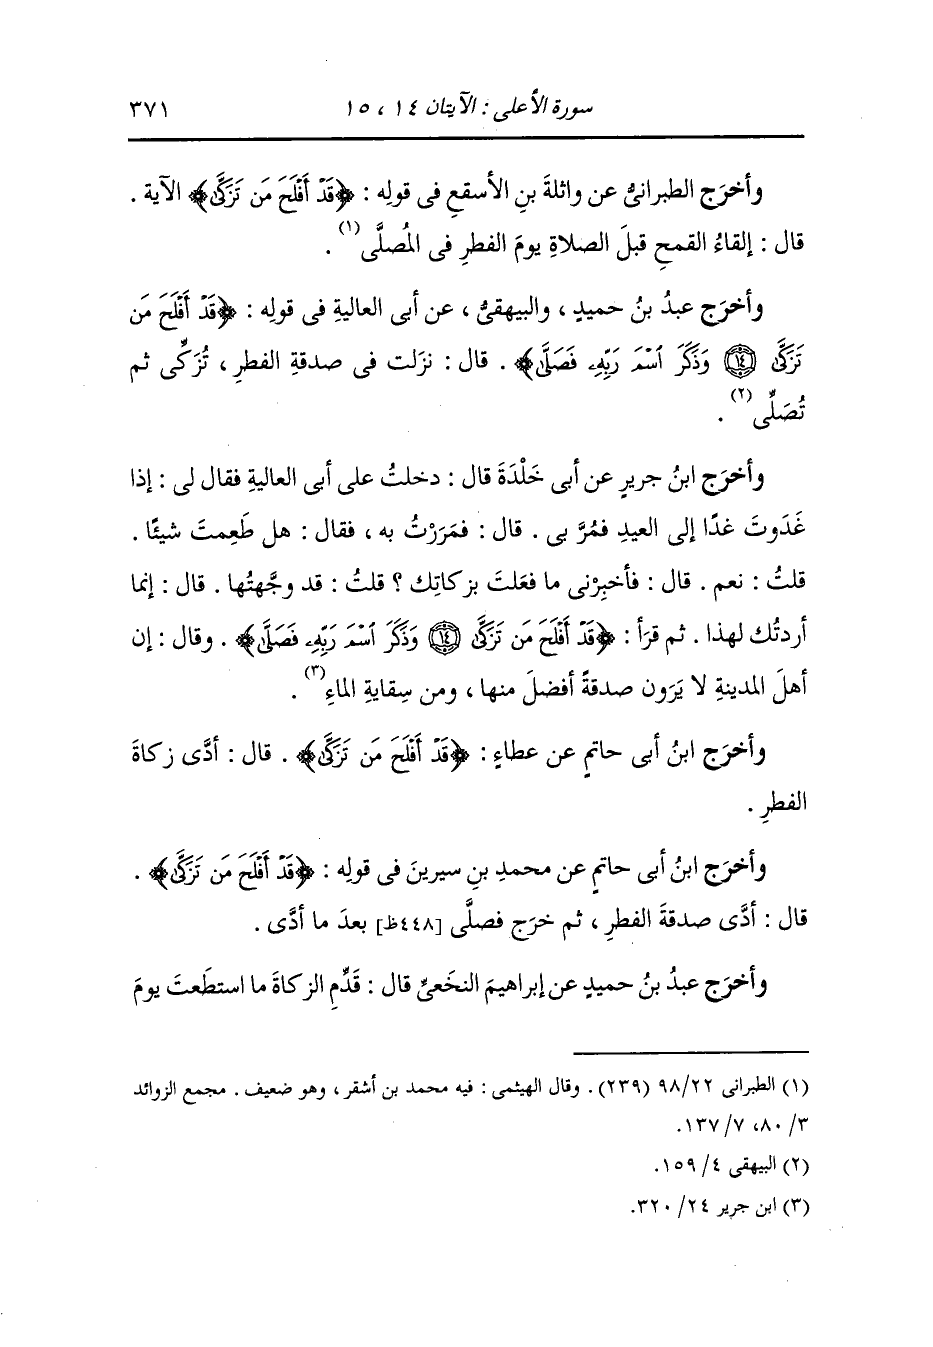 سورة الأعلى : الآيتان ١٤ ، ١٥ ٣٧١
وأخرَج الطبرانىُّ عن واثلةَ بنِ الأسقعِ فى قولِه : ﴿قَدْ أَفْلَحَ مَن تَزَكَّىٰ﴾ الآية .
قال : إلقاءُ القمحِ قبلَ الصلاةِ يومَ الفطرِ فى المُصلَّى(١) .
وأخرَج عبدُ بنُ حميدٍ ، والبيهقىُّ ، عن أبى العاليةِ فى قولِه : ﴿قَدْ أَفْلَحَ مَن
تَزَكَّىٰ ١٤ وَذَكَرَ ٱسْمَ رَبِّهِۦ فَصَلَّىٰ﴾ . قال : نزَلت فى صدقةِ الفطرِ ، تُزَكِّى ثم
تُصَلِّى(٢) .
وأخرَج ابنُ جريرٍ عن أبى خَلْدَةَ قال : دخلتُ على أبى العاليةِ فقال لى : إذا
غَدَوتَ غدًا إلى العيدِ فمُرَّ بى . قال : فمَرَرْتُ به ، فقال : هل طَعِمتَ شيئًا .
قلتُ : نعم . قال : فأخبِرْنى ما فعَلتَ بزكاتِك ؟ قلتُ : قد وجَّهتُها . قال : إنما
أردتُك لهذا . ثم قرَأ : ﴿قَدْ أَفْلَحَ مَن تَزَكَّىٰ ١٤ وَذَكَرَ ٱسْمَ رَبِّهِۦ فَصَلَّىٰ﴾ . وقال : إن
أهلَ المدينةِ لا يَرَون صدقةً أفضلَ منها ، ومن سِقايةِ الماءِ(٣) .
وأخرَج ابنُ أبى حاتمٍ عن عطاءٍ : ﴿قَدْ أَفْلَحَ مَن تَزَكَّىٰ﴾ . قال : أدَّى زكاةَ
الفطرِ .
وأخرَج ابنُ أبى حاتمٍ عن محمدِ بنِ سيرينَ فى قولِه : ﴿قَدْ أَفْلَحَ مَن تَزَكَّىٰ﴾ .
قال : أدَّى صدقةَ الفطرِ ، ثم خرَج فصلَّى [٤٤٨ظ] بعدَ ما أدَّى .
وأخرَج عبدُ بنُ حميدٍ عن إبراهيمَ النخَعىِّ قال : قَدِّمِ الزكاةَ ما استطَعتَ يومَ
(١) الطبرانى ٢٢/ ٩٨ (٢٣٩) . وقال الهيثمى : فيه محمد بن أشقر ، وهو ضعيف . مجمع الزوائد
٣/ ٨٠، ٧/ ١٣٧.
(٢) البيهقى ٤/ ١٥٩.
(٣) ابن جرير ٢٤/ ٣٢٠.